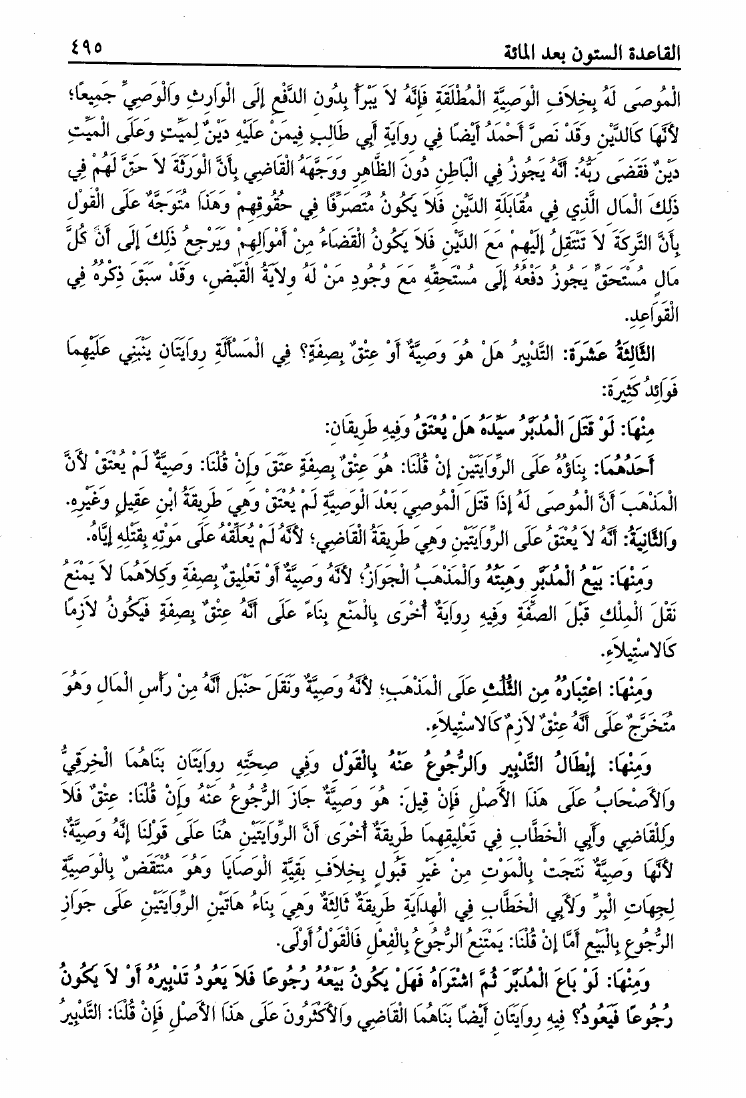 القاعدة الستون بعد المائة ٤٩٥
الْمُوصَى لَهُ بِخِلَافِ الْوَصِيَّةِ الْمُطْلَقَةِ فَإِنَّهُ لَا يَبْرَأُ بِدُونِ الدَّفْعِ إِلَى الْوَارِثِ وَالْوَصِيِّ جَمِيعًا؛
لأَنَّهَا كَالدَّيْنِ وَقَدْ نَصَّ أَحْمَدُ أَيْضًا فِي رِوَايَةِ أَبِي طَالِبٍ فِيمَنْ عَلَيْهِ دَيْنٌ لِمَيِّتٍ وَعَلَى الْمَيِّتِ
دَيْنٌ فَقَضَى رَبُّهُ: أَنَّهُ يَجُوزُ فِي الْبَاطِنِ دُونَ الظَّاهِرِ وَوَجَّهَهُ الْقَاضِي بِأَنَّ الْوَرَثَةَ لَا حَقَّ لَهُمْ فِي
ذَلِكَ الْمَالِ الَّذِي فِي مُقَابَلَةِ الدَّيْنِ فَلَا يَكُونُ مُتَصَرِّفًا فِي حُقُوقِهِمْ وَهَذَا مُتَوَجَّهٌ عَلَى الْقَوْلِ
بِأَنَّ التَّرِكَةَ لَا تَنْتَقِلُ إِلَيْهِمْ مَعَ الدَّيْنِ فَلَا يَكُونُ الْقَضَاءُ مِنْ أَمْوَالِهِمْ وَيَرْجِعُ ذَلِكَ إِلَى أَنَّ كُلَّ
مَالٍ مُسْتَحَقٍّ يَجُوزُ دَفْعُهُ إِلَى مُسْتَحِقِّهِ مَعَ وُجُودِ مَنْ لَهُ وِلَايَةُ الْقَبْضِ، وَقَدْ سَبَقَ ذِكْرُهُ فِي
الْقَوَاعِدِ.
الثَّالِثَةُ عَشَرَةَ: التَّدْبِيرُ هَلْ هُوَ وَصِيَّةٌ أَوْ عِتْقٌ بِصِفَةٍ؟ فِي الْمَسْأَلَةِ رِوَايَتَانِ يَنْبَنِي عَلَيْهِمَا
فَوَائِدُ كَثِيرَةٌ:
مِنْهَا: لَوْ قَتَلَ الْمُدَبَّرُ سَيِّدَهُ هَلْ يُعْتَقُ وَفِيهِ طَرِيقَانِ:
أَحَدُهُمَا: بِنَاؤُهُ عَلَى الرِّوَايَتَيْنِ إِنْ قُلْنَا: هُوَ عِتْقٌ بِصِفَةٍ عَتَقَ وَإِنْ قُلْنَا: وَصِيَّةٌ لَمْ يُعْتَقْ لأَنَّ
الْمَذْهَبَ أَنَّ الْمُوصَى لَهُ إِذَا قَتَلَ الْمُوصِيَ بَعْدَ الْوَصِيَّةِ لَمْ يُعْتَقْ وَهِيَ طَرِيقَةُ ابْنِ عَقِيلٍ وَغَيْرِهِ.
وَالثَّانِيَةُ: أَنَّهُ لَا يُعْتَقُ عَلَى الرِّوَايَتَيْنِ وَهِيَ طَرِيقَةُ الْقَاضِي؛ لأَنَّهُ لَمْ يُعَلِّقْهُ عَلَى مَوْتِهِ بِقَتْلِهِ إِيَّاهُ.
وَمِنْهَا: بَيْعُ الْمُدَبَّرِ وَهِبَتُهُ وَالْمَذْهَبُ الْجَوَازُ؛ لأَنَّهُ وَصِيَّةٌ أَوْ تَعْلِيقٌ بِصِفَةٍ وَكِلَاهُمَا لَا يَمْنَعُ
نَقْلَ الْمِلْكِ قَبْلَ الصِّفَةِ وَفِيهِ رِوَايَةٌ أُخْرَى بِالْمَنْعِ بِنَاءً عَلَى أَنَّهُ عِتْقٌ بِصِفَةٍ فَيَكُونُ لَازِمًا
كَالِاسْتِيلَاءِ.
وَمِنْهَا: اعْتِبَارُهُ مِنِ الثُّلُثِ عَلَى الْمَذْهَبِ؛ لأَنَّهُ وَصِيَّةٌ وَنَقَلَ حَنْبَلٌ أَنَّهُ مِنْ رَأْسِ الْمَالِ وَهُوَ
مُتَخَرَّجٌ عَلَى أَنَّهُ عِتْقٌ لَازِمٌ كَالِاسْتِيلَاءِ.
وَمِنْهَا: إِبْطَالُ التَّدْبِيرِ وَالرُّجُوعُ عَنْهُ بِالْقَوْلِ وَفِي صِحَّتِهِ رِوَايَتَانِ بَنَاهُمَا الْخِرَقِيُّ
وَالأَصْحَابُ عَلَى هَذَا الأَصْلِ فَإِنْ قِيلَ: هُوَ وَصِيَّةٌ جَازَ الرُّجُوعُ عَنْهُ وَإِنْ قُلْنَا: عِتْقٌ فَلَا
وَلِلْقَاضِي وَأَبِي الْخَطَّابِ فِي تَعْلِيقِهِمَا طَرِيقَةٌ أُخْرَى أَنَّ الرِّوَايَتَيْنِ هُنَا عَلَى قَوْلِنَا إِنَّهُ وَصِيَّةٌ؛
لأَنَّهَا وَصِيَّةٌ نَتَجَتْ بِالْمَوْتِ مِنْ غَيْرِ قَبُولٍ بِخِلَافِ بَقِيَّةِ الْوَصَايَا وَهُوَ مُنْتَقَضٌ بِالْوَصِيَّةِ
لِجِهَاتِ الْبِرِّ وَلأَبِي الْخَطَّابِ فِي الْهِدَايَةِ طَرِيقَةٌ ثَالِثَةٌ وَهِيَ بِنَاءُ هَاتَيْنِ الرِّوَايَتَيْنِ عَلَى جَوَازِ
الرُّجُوعِ بِالْبَيْعِ أَمَّا إِنْ قُلْنَا: يَمْتَنِعُ الرُّجُوعُ بِالْفِعْلِ فَالْقَوْلُ أَوْلَى.
وَمِنْهَا: لَوْ بَاعَ الْمُدَبَّرَ ثُمَّ اشْتَرَاهُ فَهَلْ يَكُونُ بَيْعُهُ رُجُوعًا فَلَا يَعُودُ تَدْبِيرُهُ أَوْ لَا يَكُونُ
رُجُوعًا فَيَعُودُ؟ فِيهِ رِوَايَتَانِ أَيْضًا بَنَاهُمَا الْقَاضِي وَالأَكْثَرُونَ عَلَى هَذَا الأَصْلِ فَإِنْ قُلْنَا: التَّدْبِيرُ